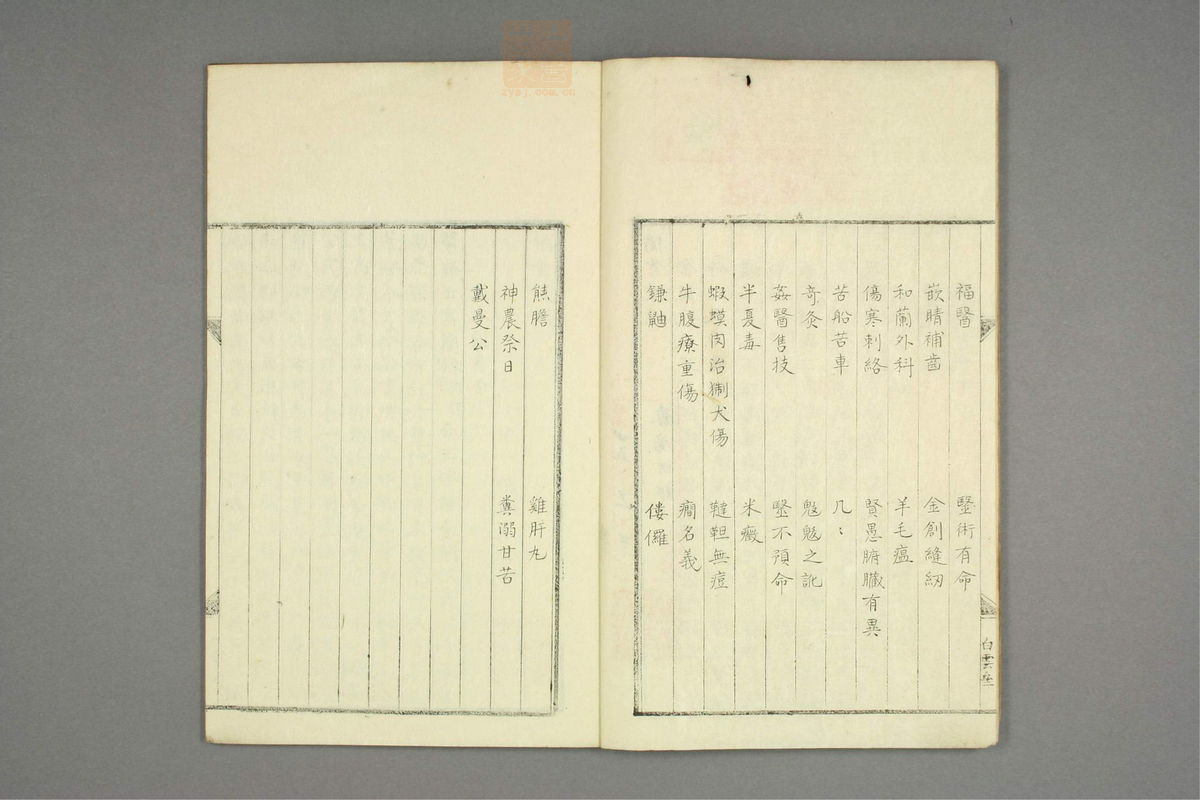 福醫　醫術有命
嵌睛補齒　金創縫紉
和蘭外科　羊毛瘟
傷寒刺絡　賢愚腑臟有異
苦船苦車　几〻
奇灸　魃魃之訛
姦醫售技　醫不預命
半夏毒　米癥
蝦蟆肉治猘犬傷　韃靼無痘
牛腹療重傷　癇名義
鎌鼬　僂儸
白雲
熊膽　雞肝丸
神農祭日　糞溺甘苦
戴曼公
zysj.com.cn